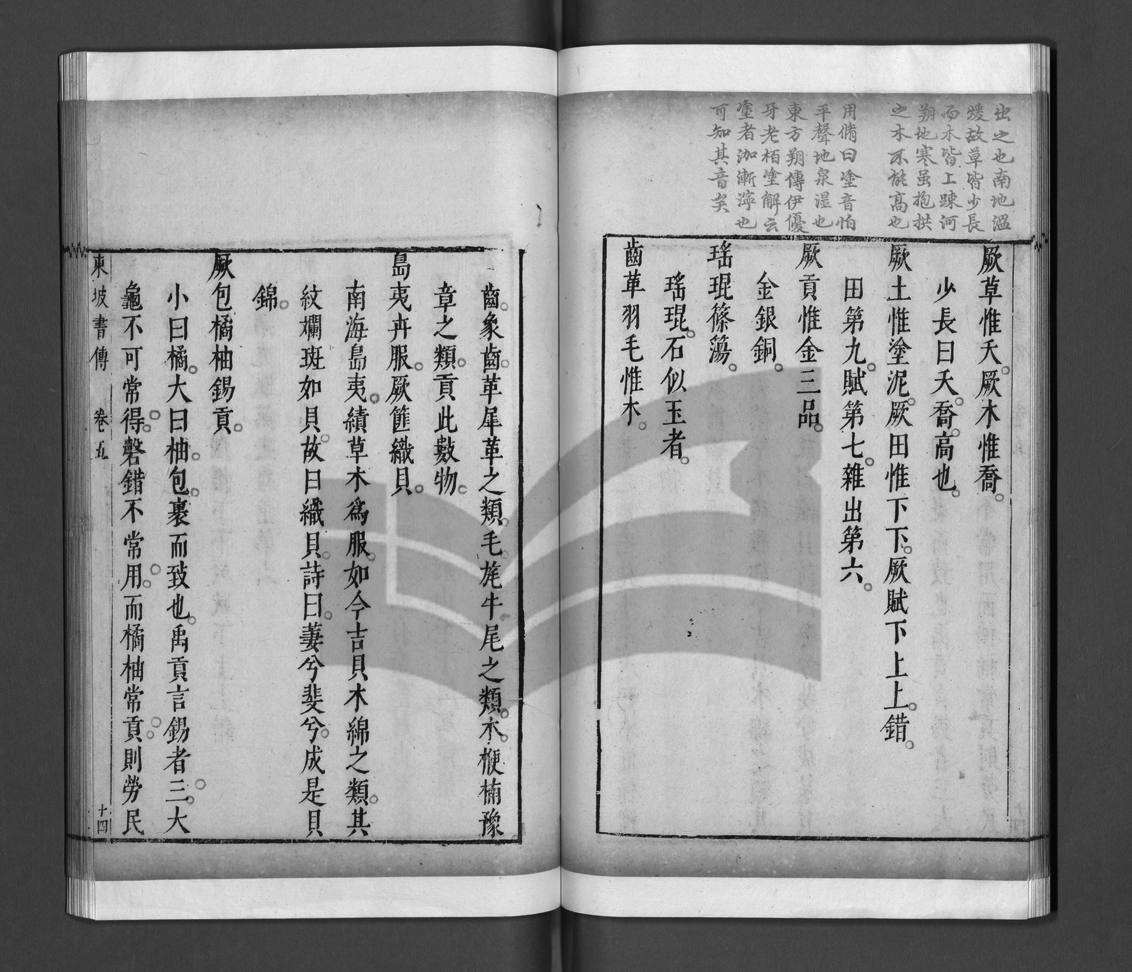 出之也南地溫
煖故草皆少長
而木皆上竦河
朔地寒虽抱拱
之木不能高也
用脩曰塗音怕
平聲地泉湿也
東方朔傳伊優
牙老栢塗解云
塗者泇漸濘也
可知其音矣
厥草惟夭厥木惟喬
少長曰夭喬高也
厥土惟塗泥厥田惟下下厥賦下上上錯
田第九賦第七雜出第六
厥貢惟金三品
金銀銅
瑤琨篠簜
瑤琨石似玉者
齒革羽毛惟木
齒象齒革犀革之類毛旄牛尾之類木楩楠豫
章之類貢此數物
島夷卉服厥篚織貝
南海島夷績草木爲服如今吉貝木綿之類其
紋斕斑如貝故曰織貝詩曰萋兮斐兮成是貝
錦
厥包橘柚錫貢
小曰橘大曰柚包裹而致也禹貢言錫者三大
龜不可常得磬錯不常用而橘柚常貢則勞民
東坡書傳 卷五 十四